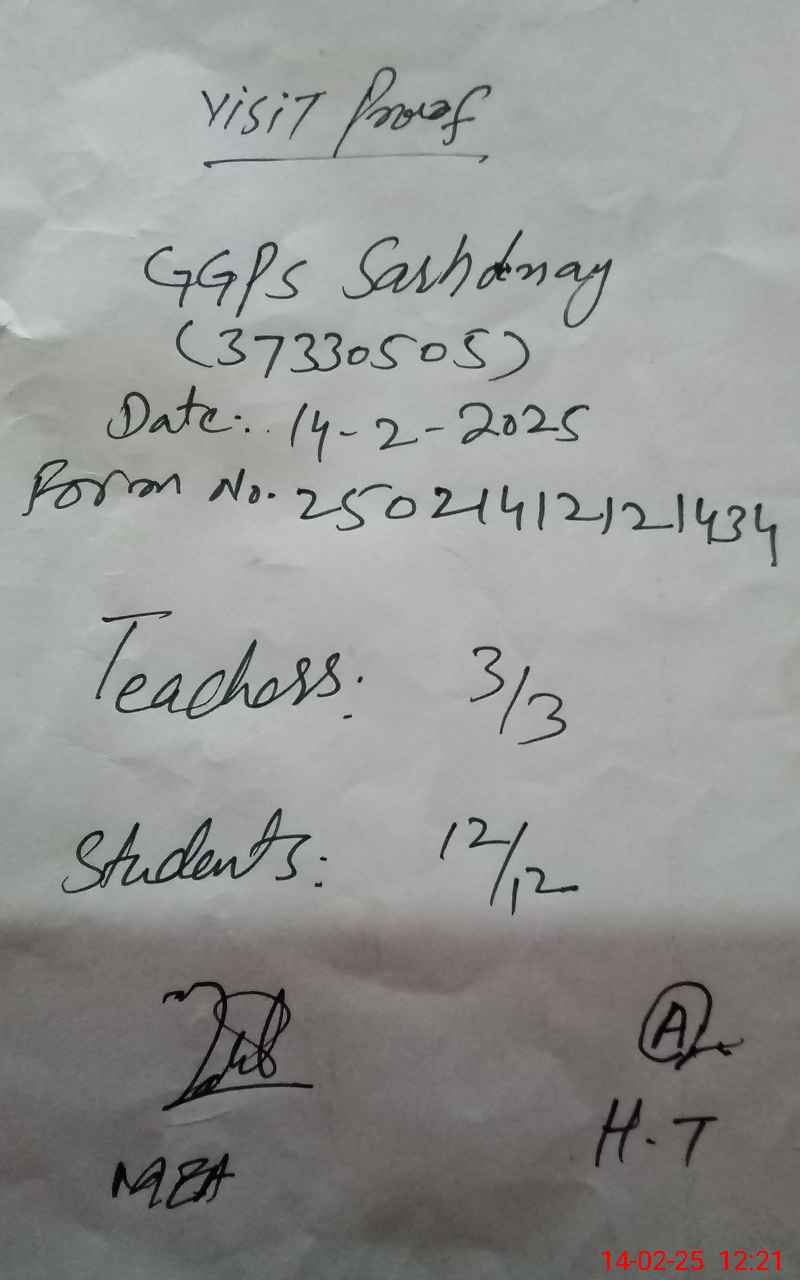 Visit Proof
GGPS Sarhdnay
(37330505)
Date:. 14-2-2025
Form No. 25021412121434
Teachers: 3/3
Students: 12/12
A
MEA H.T
14-02-25 12:21